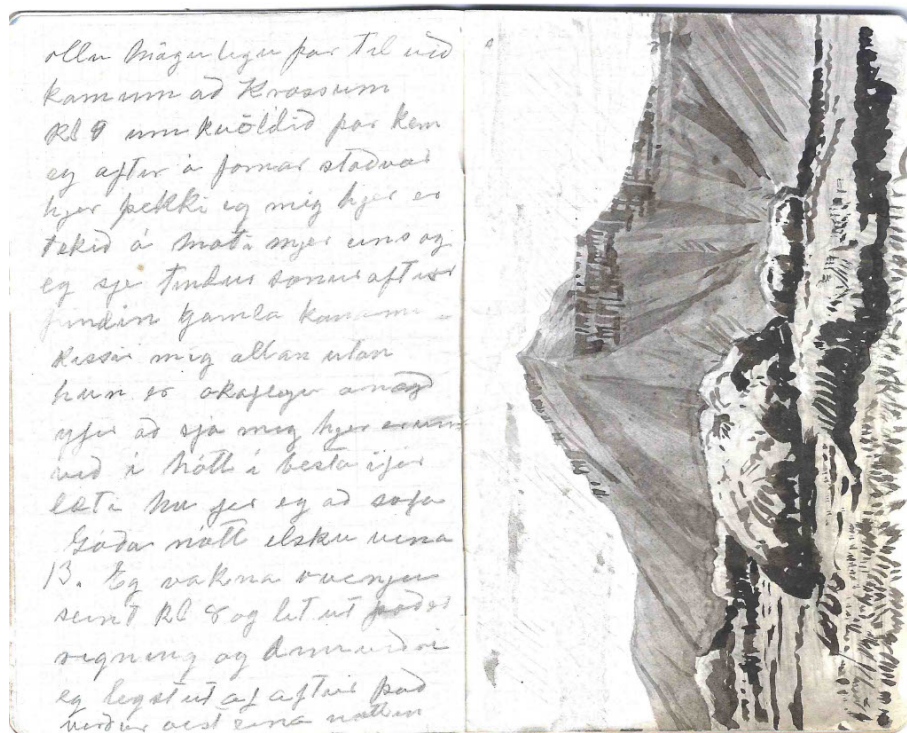 ollu mögulegu þar til við
kamum að Krossum
Kl 9 um kvöldið þar kem
eg aftir á fornar stoðvar
hjer þekki eg mig hjer er
tekið á moti mjer eins og
eg sje tindur sonur aftur
fundin Gamla konan
kissir mig allan utan
hun er akaflega anægð
yfir að sja mig hjer erum
við í nótt í besta ifir
læti nu fer eg að sofa
Góða nótt elsku vina
13. Eg vakna
seint Kl 8 og lit ut það er
rigning og
eg legst ut af aftur það
verður vist eina nottin